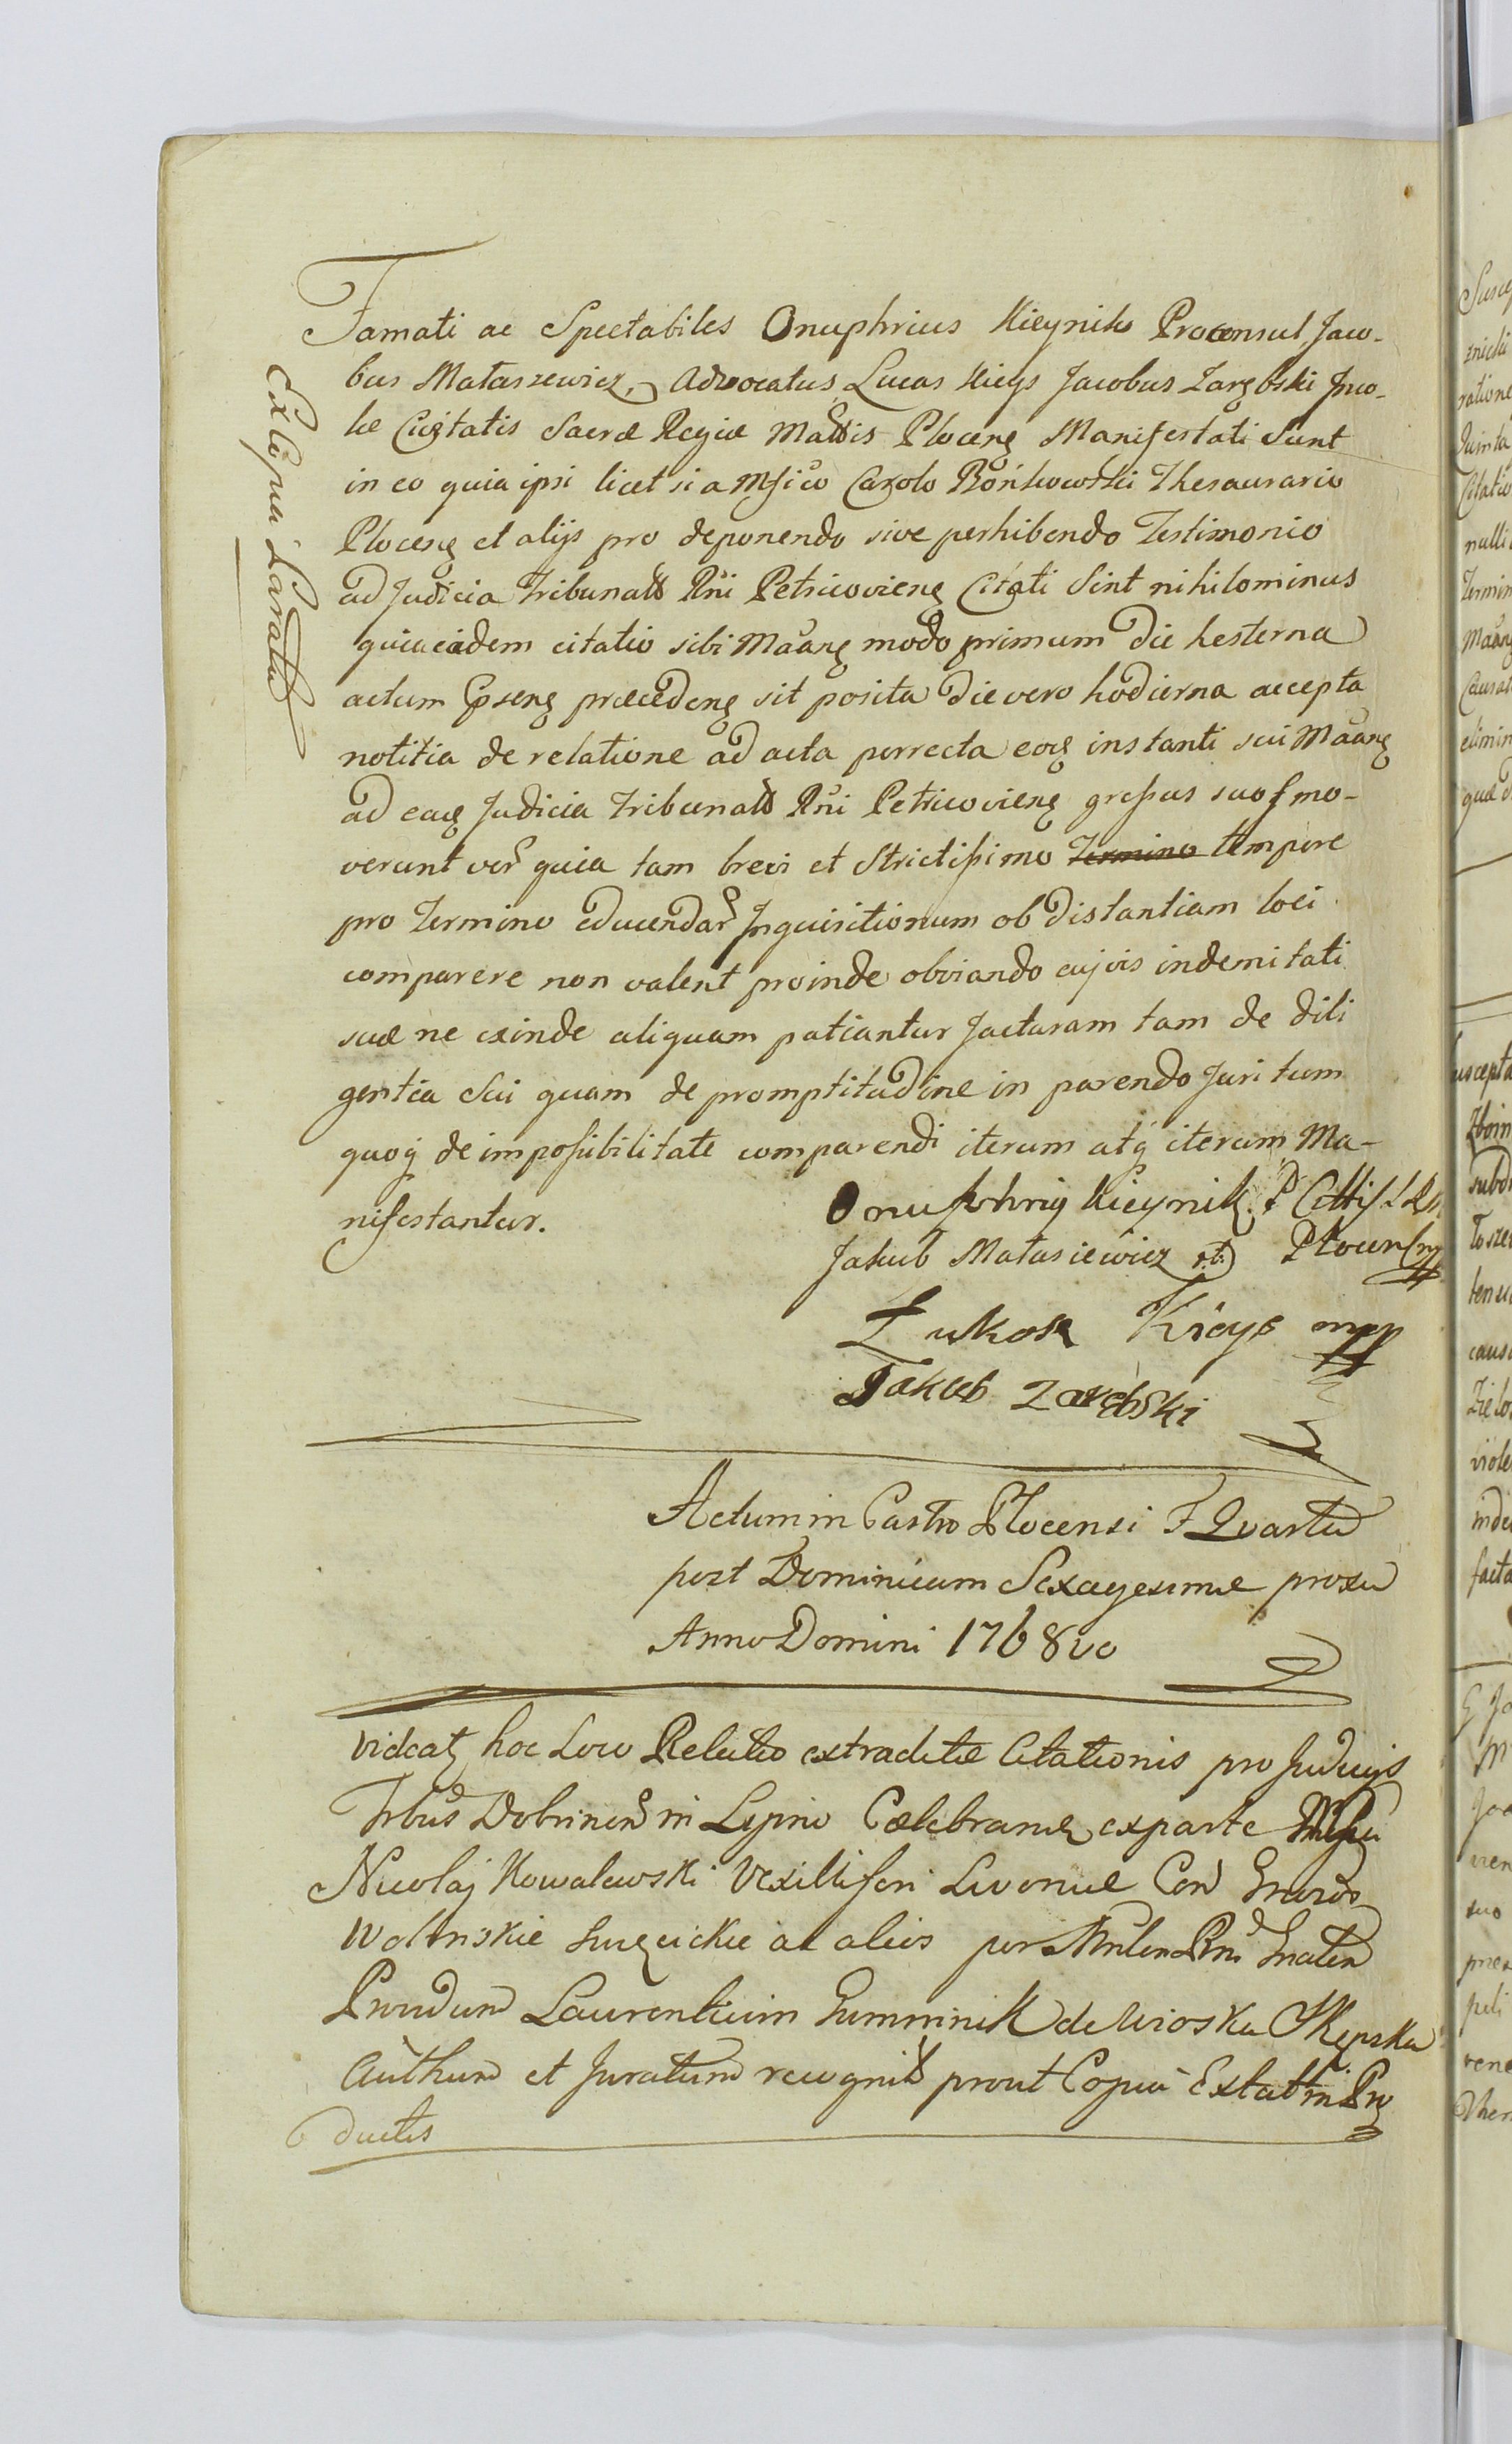 Famati ac Spectabiles Onuphrius Kieynik Proconsul, Jaco-
bus Mataszewicz, Advocatus, Lucas Kieys Jacobus Zarębski Inco-
læ Cuitatis Sacræ Regiæ Mattis Ploceng Manifestati Sunt
in eo quia ipsi licet si a Mfico Carolo Bońkowski Thesaurario
Ploceng et alijs pro deponendo sive perhibendo Testimonio
ad Judicia Tribunalis Rni Petricovieng Citati Sint nihilominus
quia eadem citatio sibi Maang modo primum die hesterna
actum Pseng præcedeng sit posita die vero hodierna accepta
notitia de relatione ad acta perrecta eoq instanti sui Maang
ad eaq Judicia Tribunalis Rni Petricovieng greſsus suos mo-
verunt ver quia tam brevi et Strictiſsimo Termino tempore
pro Termino educendar Inquisitionum ob distantiam loci
comparere non valent proinde obviando cujvis indemitati
suæ ne exinde aliquam patiantur Jacturam tam de dili
gentia Sui quam de promptitudine in parendo Juri tum
quoq de impoſsibilitate comparendi iterum atq iterum Ma-
nifestantur.
Ex Copia Laratu
Onuphrig Kieynik P
Jakub Matasiewicz
Łukasz Kieys mpp
Jakub Zarębski
Actum in Castro Plocensi F Quarta
post Dominicam Sexagesimæ proxa
Anno Domini 1768vo
Videatz hoc Loco Relatio extraditæ Citationis pro Judicijs
Trbus Dobrinen in Lipno Cælebrang ex parte
Nicolaj Kowalewski Vexilliferi Livoniæ Con
Wolinskie ac alios per
Prvidum Laurentium de Wioska Skępska
Authum et Juratum recognit prout Copia Extat in Pro
ductis